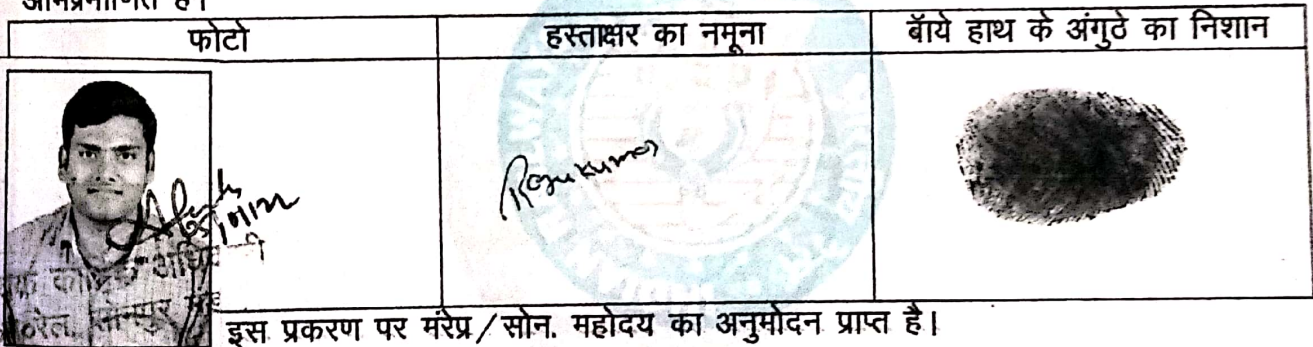 अभिप्रमाणित है।
फोटो
हस्ताक्षर का नमूना
बॉये हाथ के अंगुठे का निशान
Raju Kumar
इस प्रकरण पर मंरेप्र/सोन. महोदय का अनुमोदन प्राप्त है।